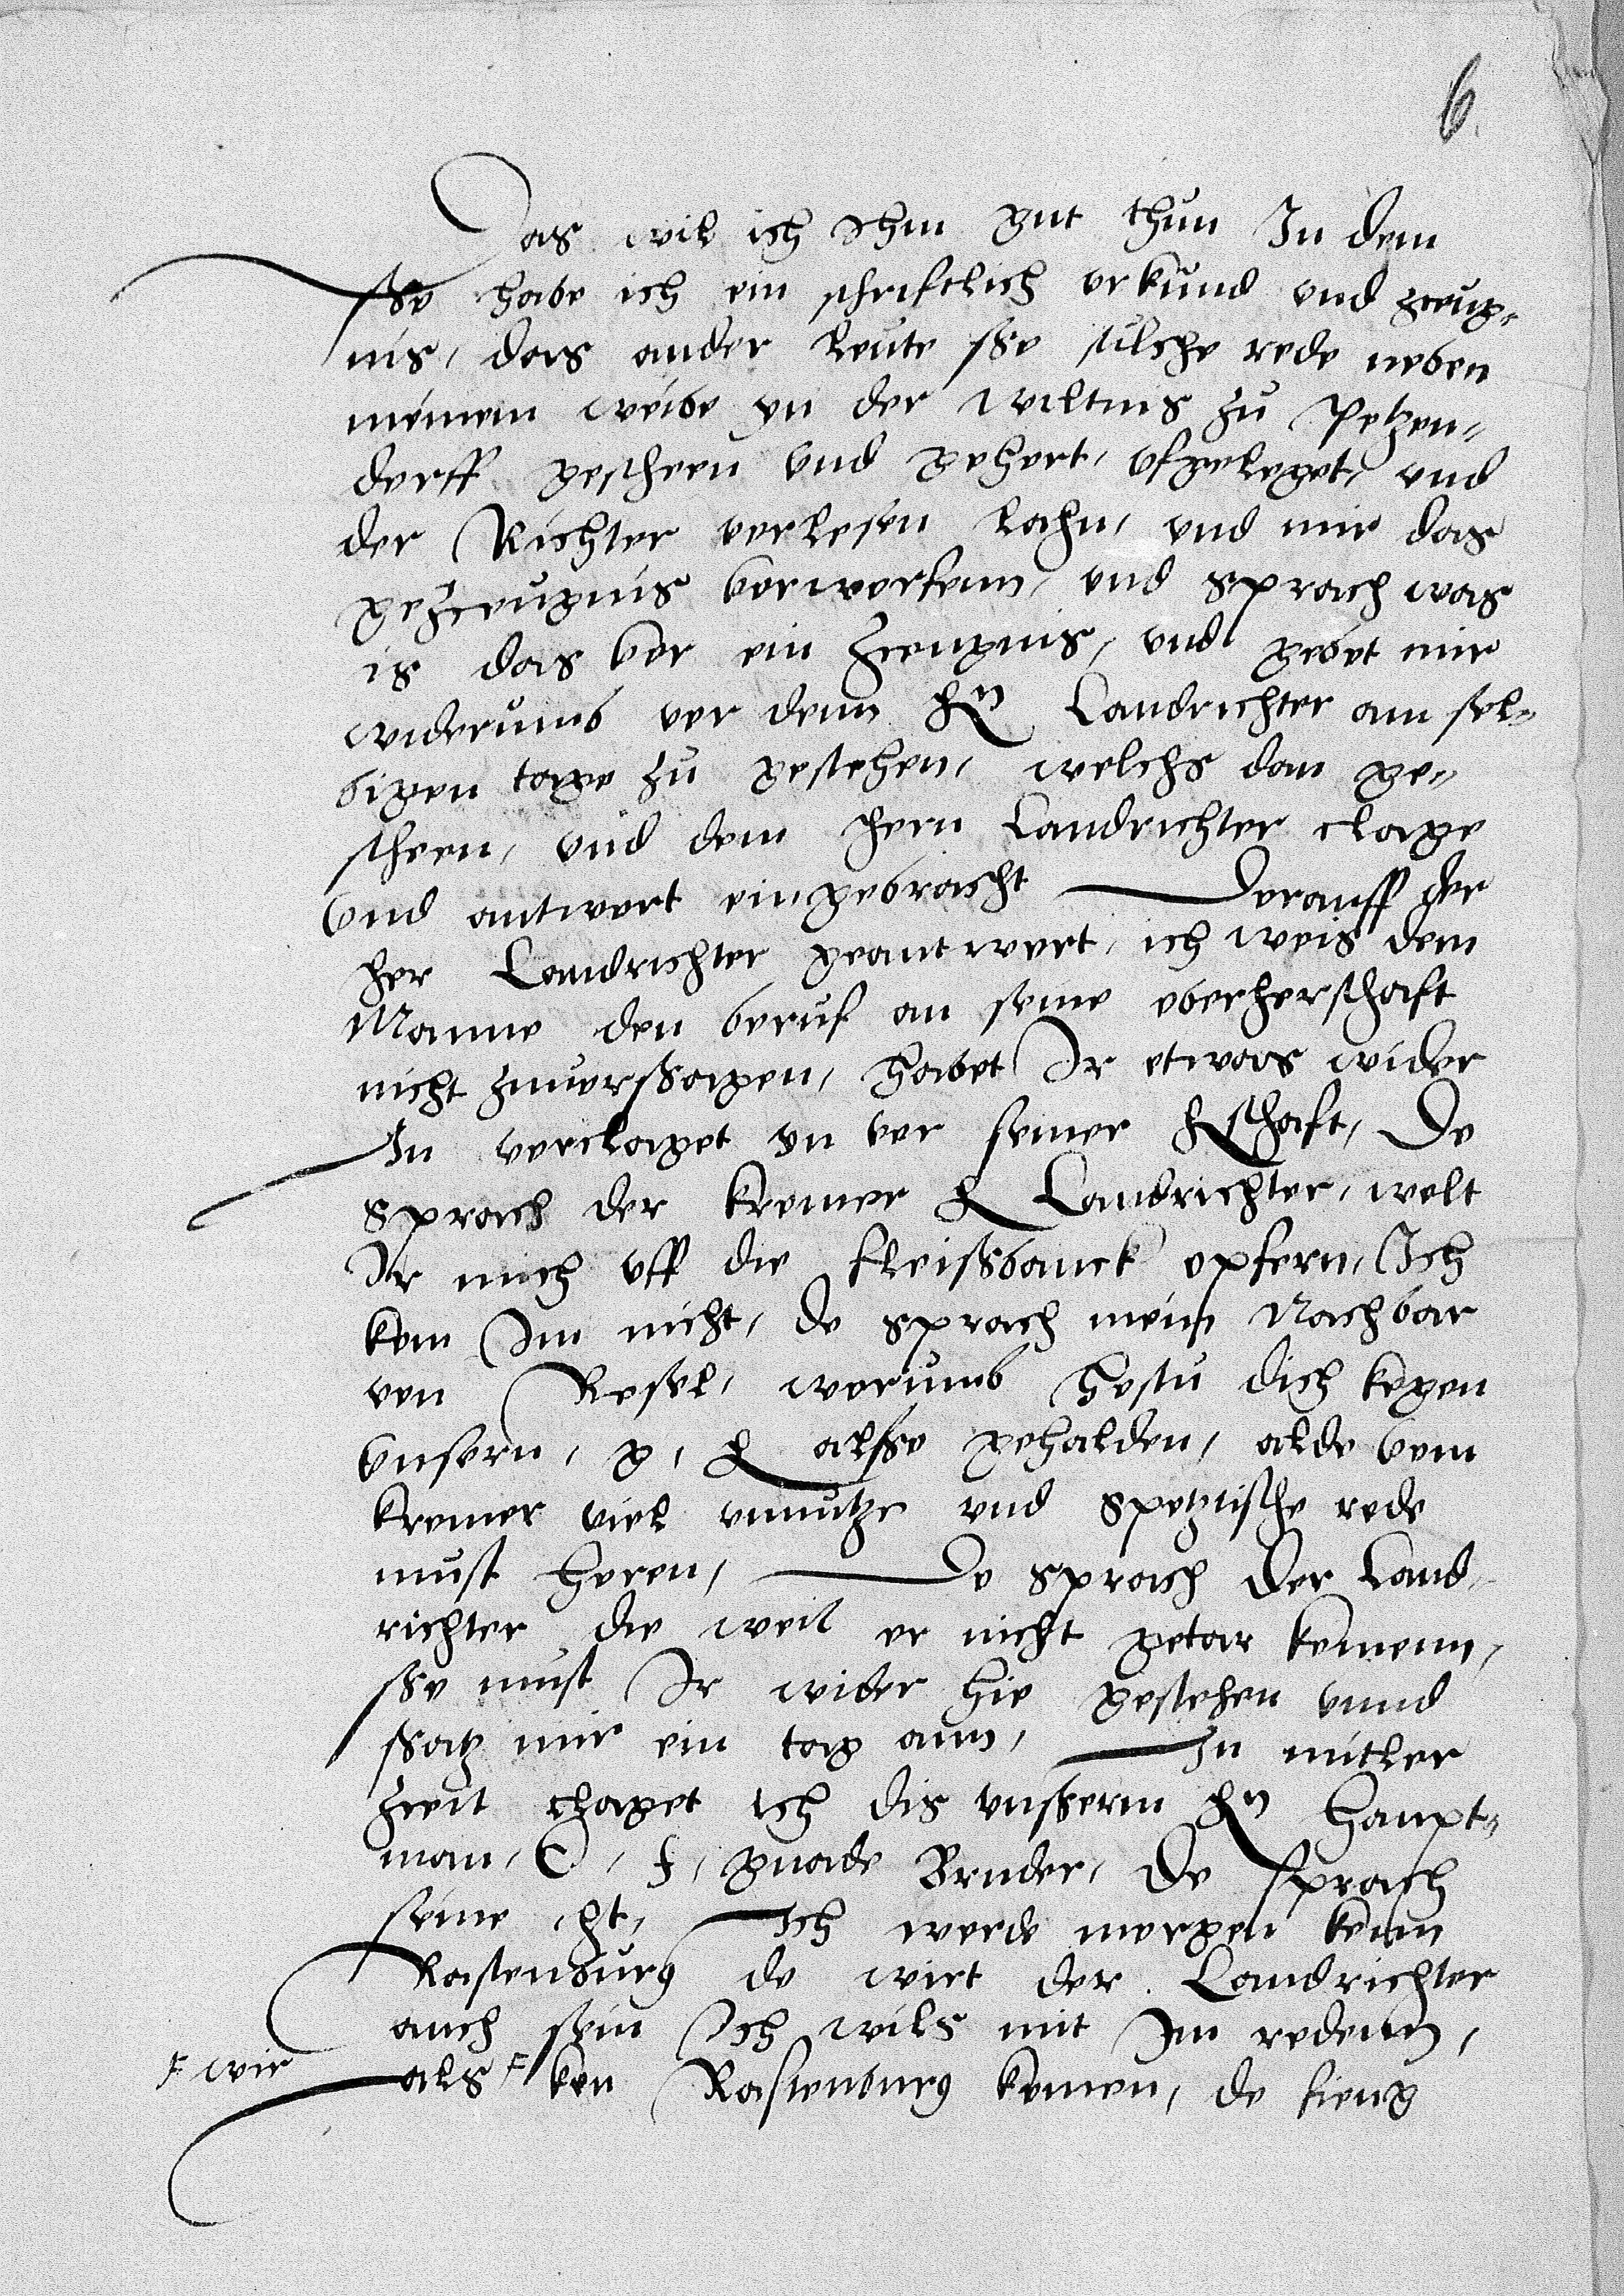 6.
Das wil ich Ihm gut thun In dem
sso habe ich ein schriftlich orkund und zceug-
nis, das ander leute sso sulche rede neben
meinem weibe yn der wiltnis zu Petzen-
dorff gescheen vnd gehort, vfgeleget, und
der Richter vorlesen lahn, und mir das
gezceugnis vorworfenn, und sprach was
is das vor ein zceugnis, und gebot mir
widerumb vor denn hn Landrichter am sel-
bigen tage zu gestehen, welchs dan ge-
scheen, vnd dem hern Landrichter clage
vnd antwort eingebracht Dorauff der
her Landrichter geantwort, ich weis dem
Manne den beruf an seine oberherschaft
nicht zuuorssagen, habet Ir etwas wider
In vorclaget yn vor seiner hschaft, Do
sprach der kremer h Landrichter, wolt
Ir mich vff die fleisbanck opfern, Ich
kom Im nicht, do sprach mein Nachbar
von Resel, worumb hostu dich kegen
vnsern, g, h also gehalden, alde vom
kremer viel vnnutze und spetzische rede
must horen, Do sprach der Land-
richter die weil er nicht getar komenn,
sso must Ir wider hie gestehen vnnd
ssatz mir ein tag ann, In mitler
zceit claget ich dis vnsserm hn Haupt-
man, E, f, gnade Bruder, Do sprach
seine ht, Ich werde morgen kenn
Rastenburg do wirt der Landrichter
auch sein Ich wils mit Im redenn,
als ken Rastenburg komen, do fieng
wir